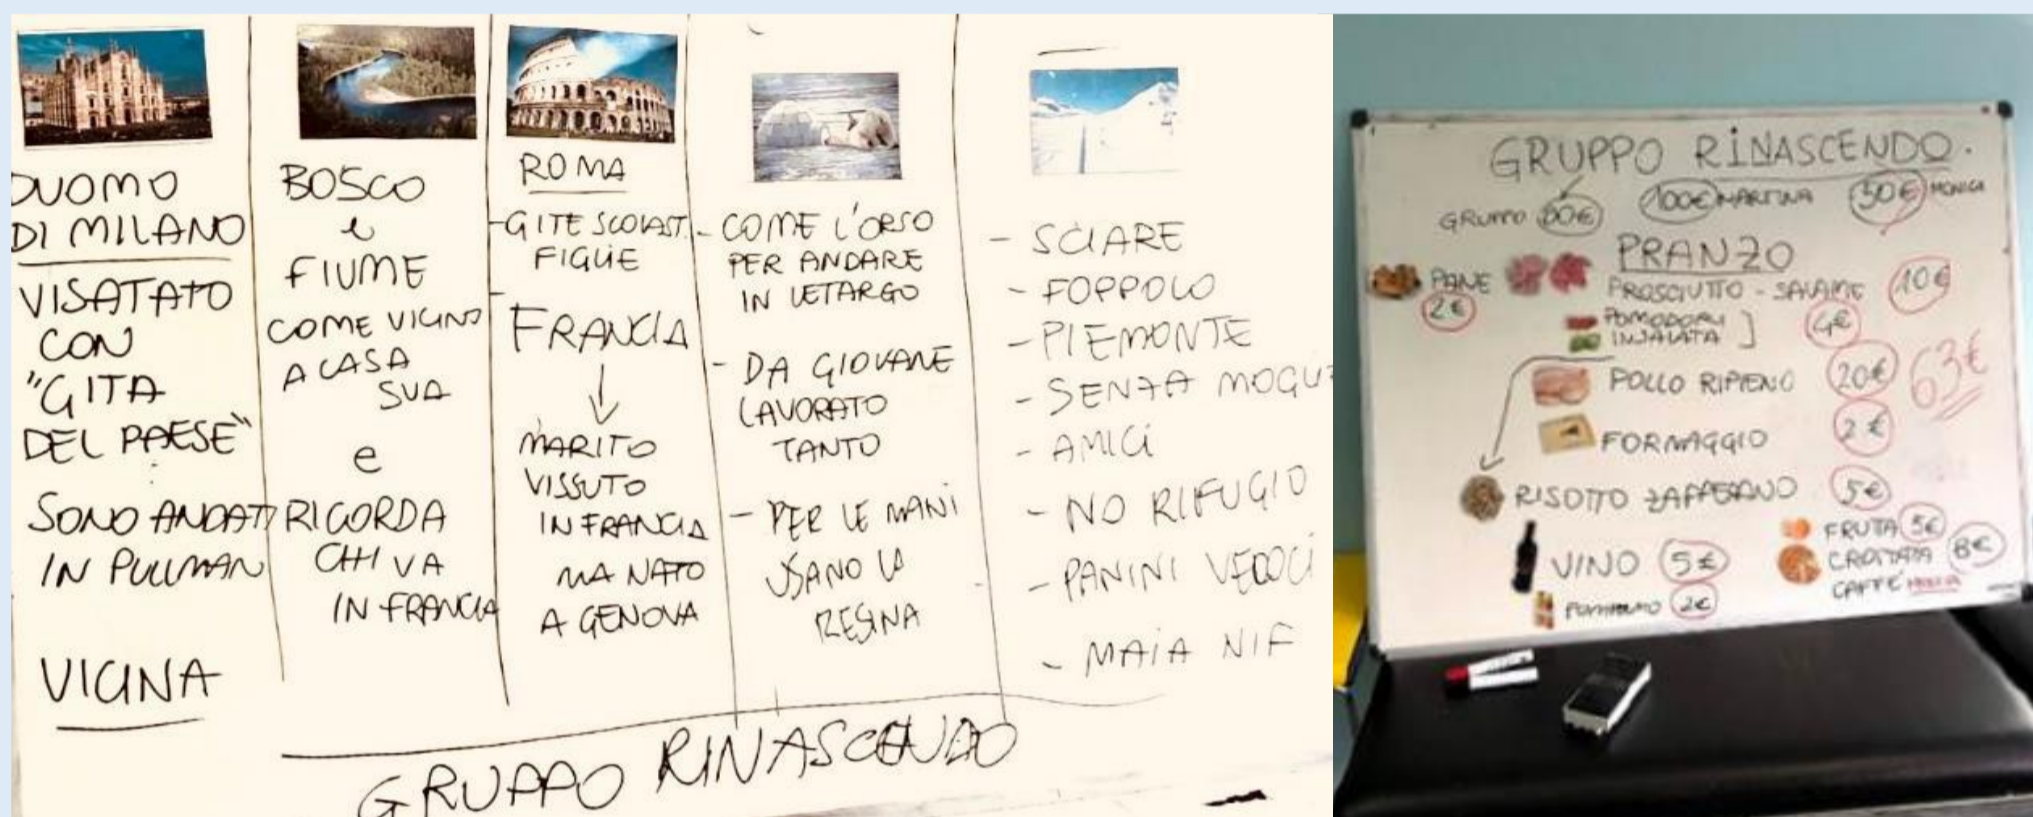 DUOMO
DI MILANO
VISATATO
CON
"GITA
DEL PAESE"
SONO ANDATI
IN PULLMAN
VICINA
BOSCO
e
FIUME
COME VICINO
A CASA
SUA
e
RICORDA
CHI VA
IN FRANCIA
ROMA
- GITE SCOLAST.
FIGLIE
- FRANCIA
MARITO
VISSUTO
IN FRANCIA
MA NATO
A GENOVA
- COME L'ORSO
PER ANDARE
IN LETARGO
- DA GIOVANE
LAVORATO
TANTO
- PER LE MANI
USANO LA
RESINA
- SCIARE
- FOPPOLO
- PIEMONTE
- SENZA
- AMICI
- NO RIFUGIO
- PANINI VELOCI
- MAIA NIF
GRUPPO RINASCENDO
GRUPPO RINASCENDO.
GRUPPO 100€ MARTINA 50€ MONICA
PRANZO
PANE
2€
PROSCIUTTO - SALAME 10€
POMODORI
INSALATA ] 4€
POLLO RIPIENO 20€
63€
FORMAGGIO 2€
RISOTTO ZAFFERANO 5€
VINO 5€
2€
FRUTA 5€
CROSTATA 8€
CAFFE'